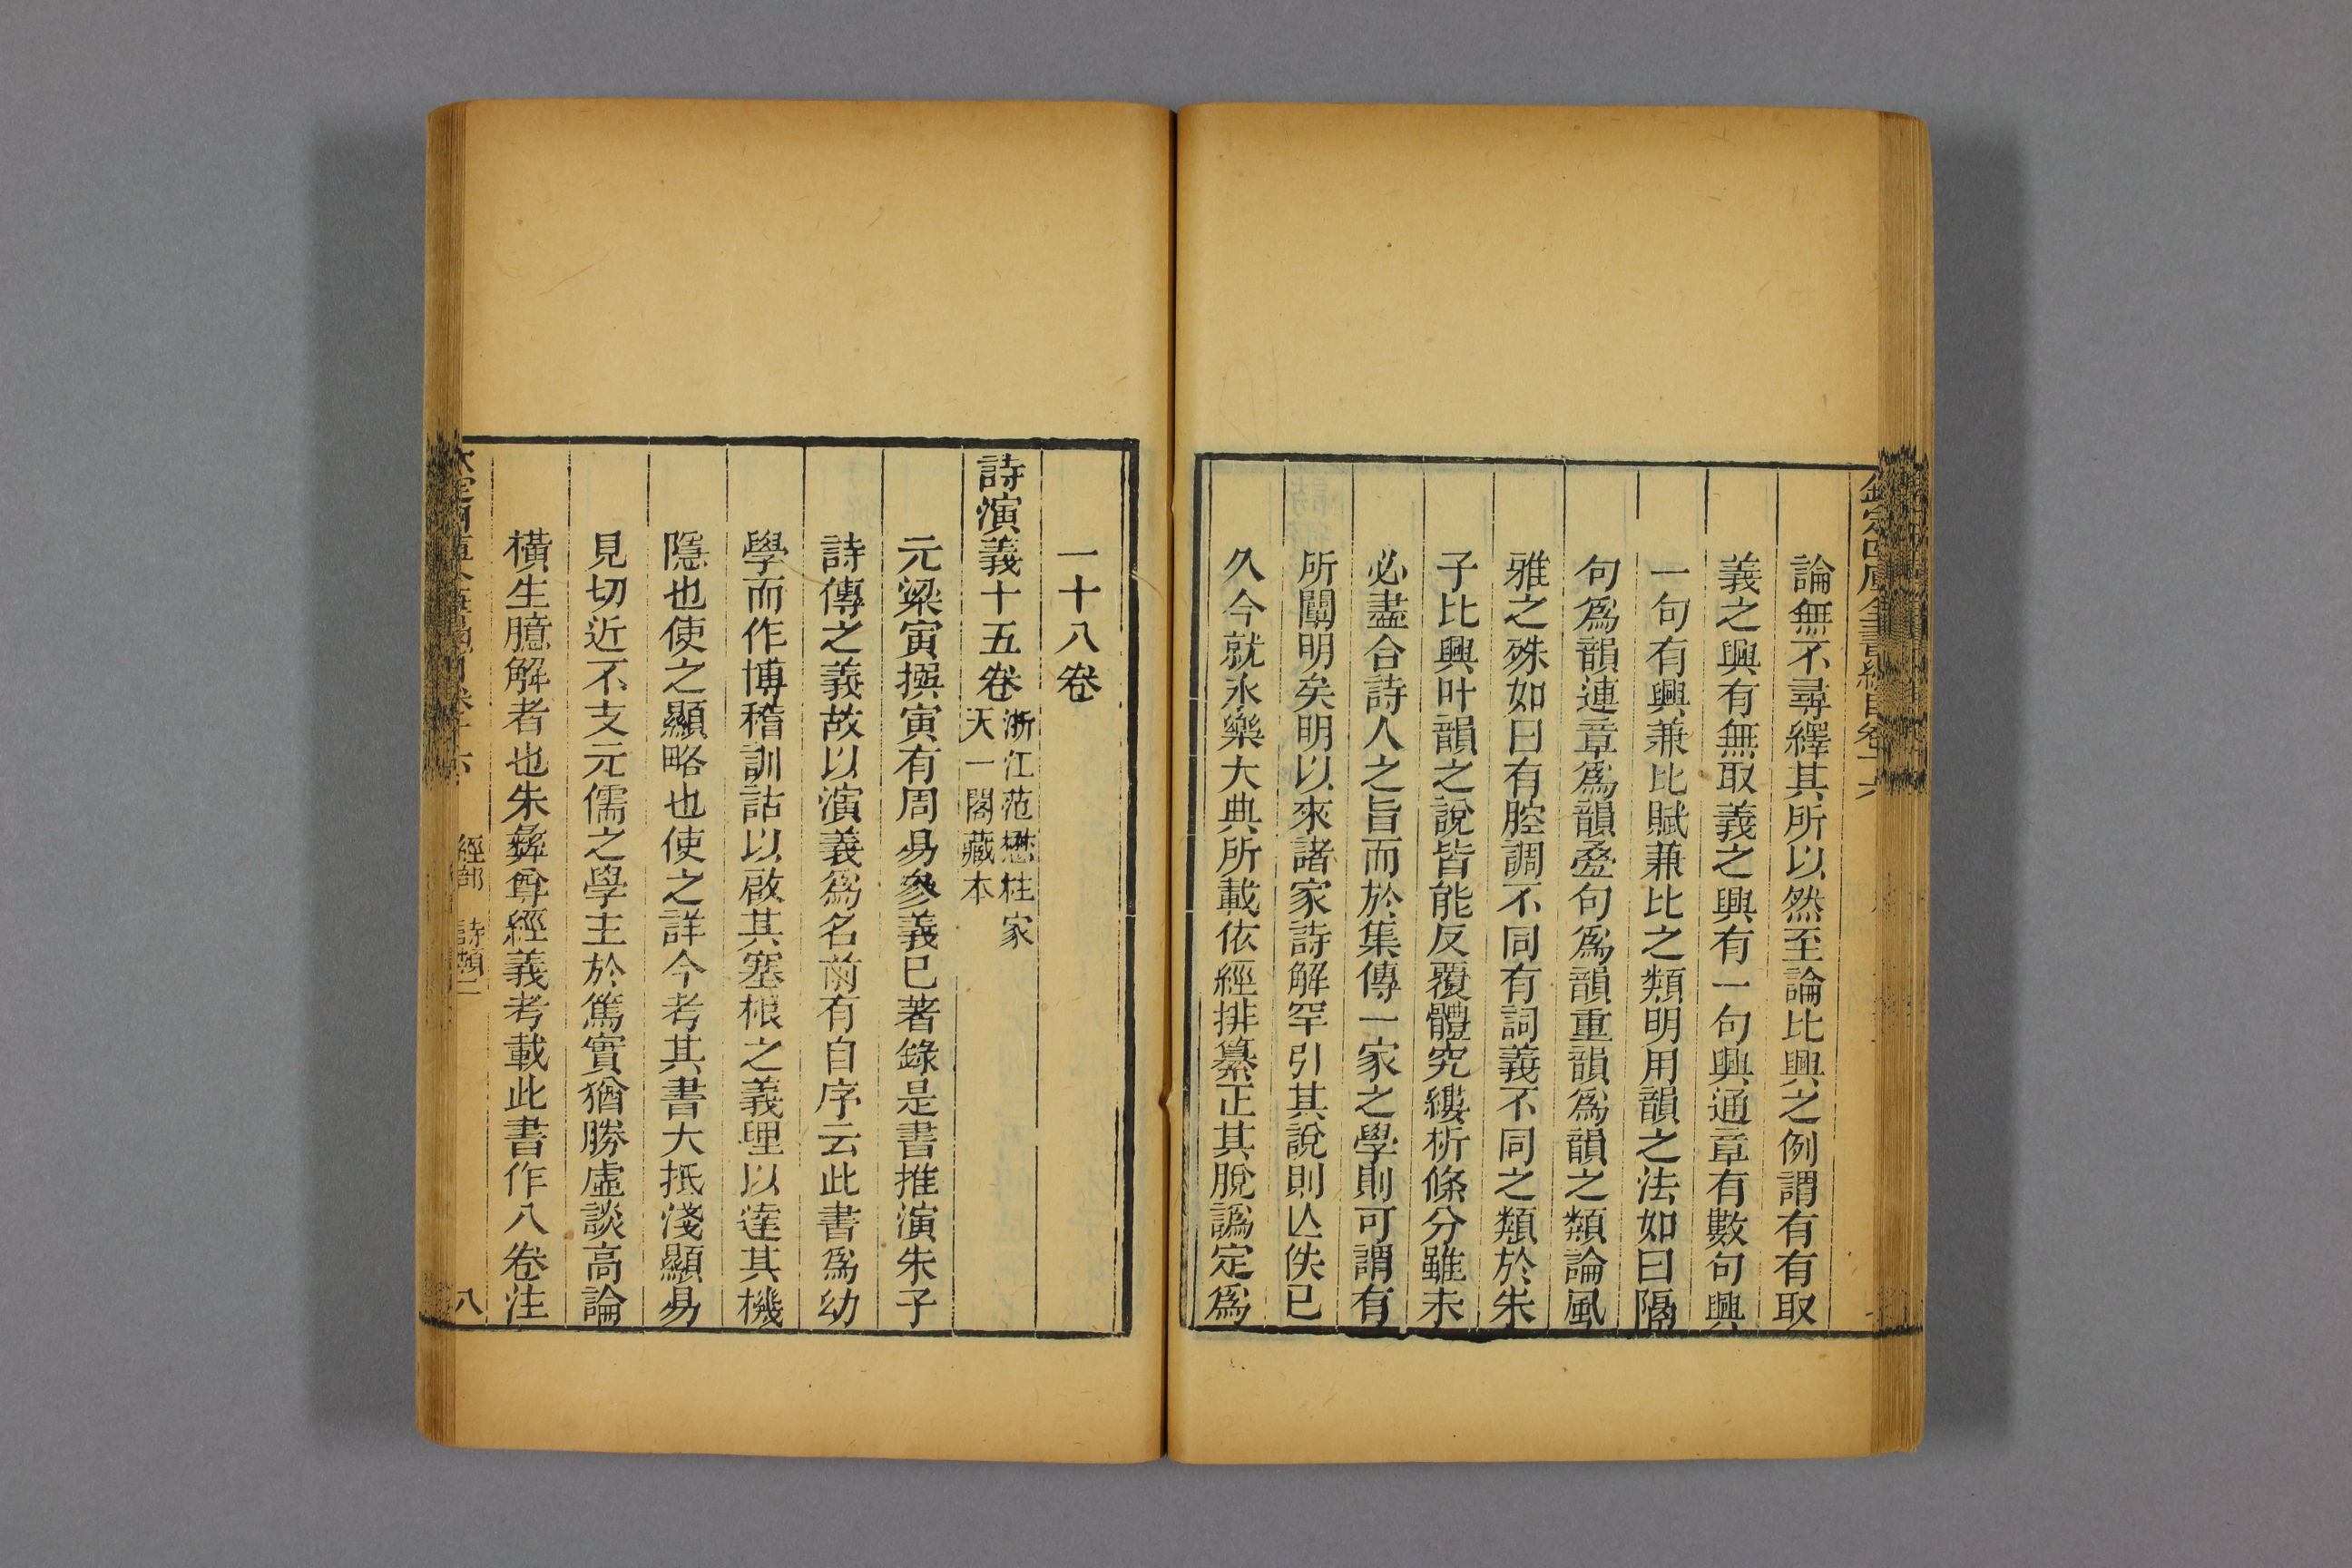 欽定四庫全書總目卷十六
論無不尋繹其所以然至論比興之例謂有有取
義之興有無取義之興有一句興通章有數句興
一句有興兼比賦兼比之類明用韻之法如曰隔
句爲韻連章爲韻疊句爲韻重韻爲韻之類論風
雅之殊如曰有腔調不同有詞義不同之類於朱
子比興叶韻之說皆能反覆體究縷析條分雖未
必盡合詩人之旨而於集傳一家之學則可謂有
所闡明矣明以來諸家詩解罕引其說則亾佚已
久今就永樂大典所載依經排纂正其脫譌定爲
一十八卷
詩演義十五卷 浙江范懋柱家
天一閣藏本
元梁寅撰寅有周易參義已著錄是書推演朱子
詩傳之義故以演義爲名前有自序云此書爲幼
學而作博稽訓詁以啟其塞根之義理以達其機
隱也使之顯略也使之詳今考其書大抵淺顯易
見切近不支元儒之學主於篤實猶勝虛談高論
橫生臆解者也朱彝尊經義考載此書作八卷注
經部 詩類二
八